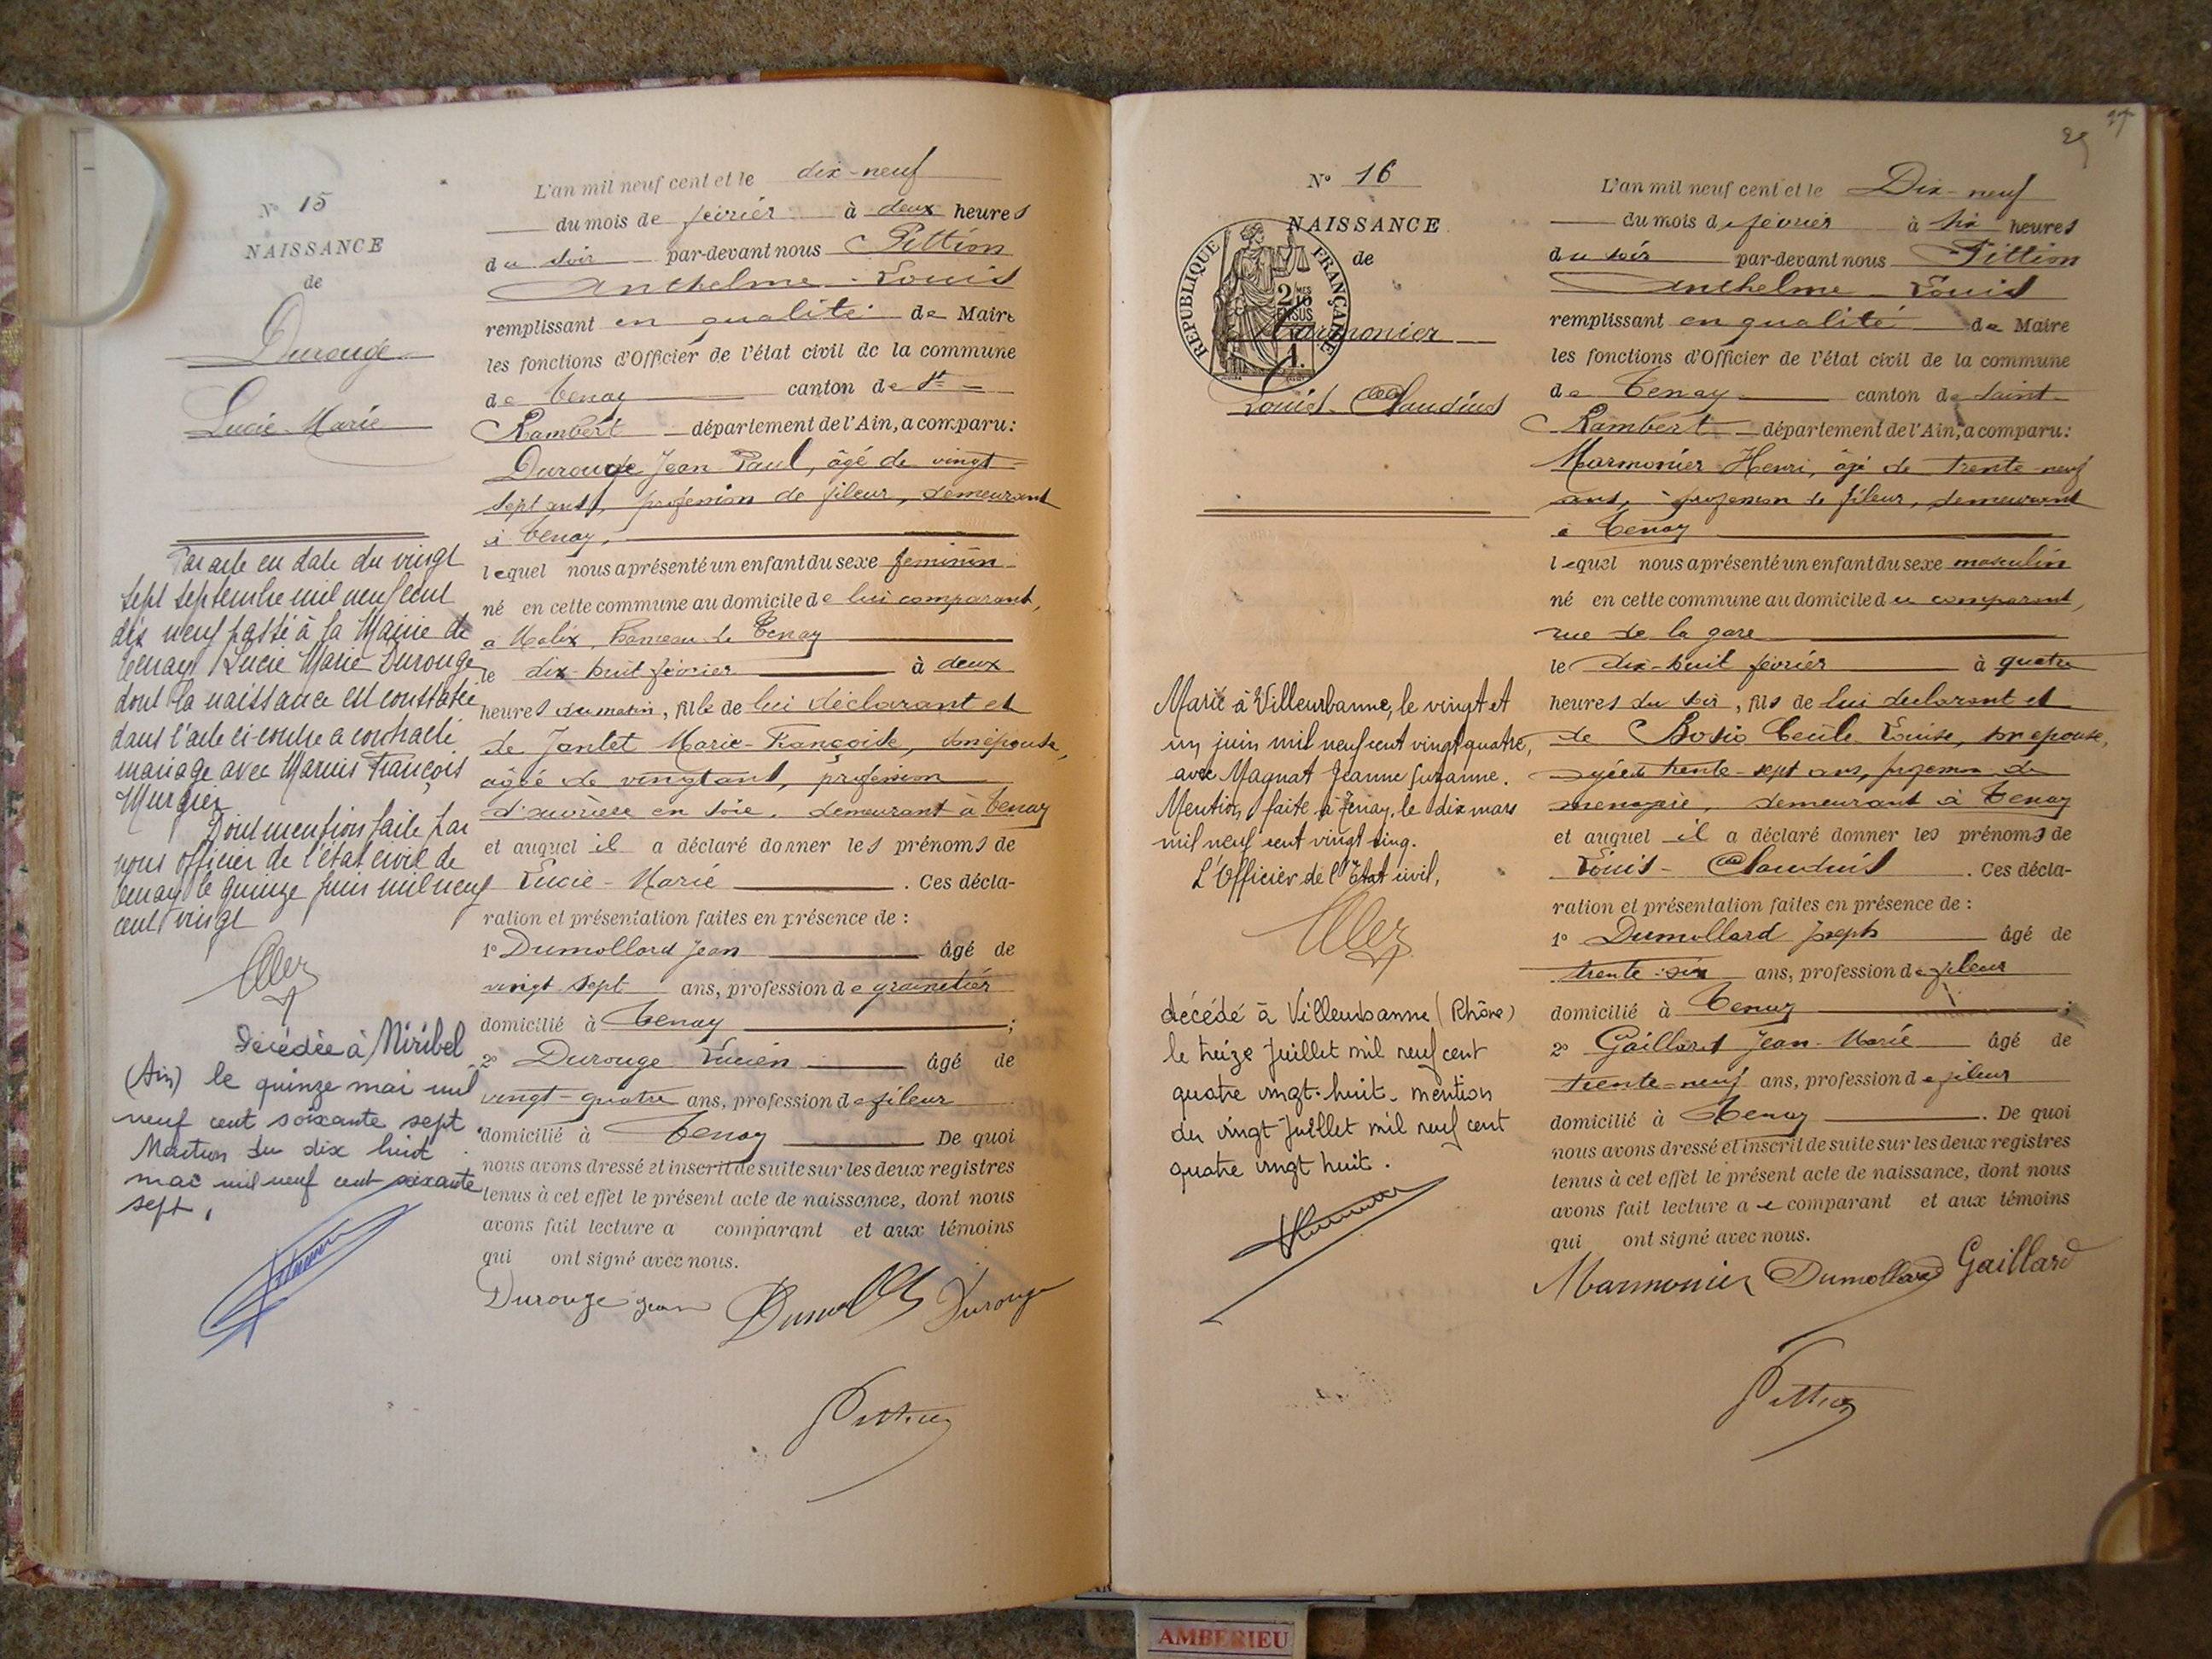 N° 15
NAISSANCE
de
Durouge
Lucie-Marie
Par acte en date du vingt
sept septembre mil neuf cent
dix neuf passé à la Mairie de
Tenay, Lucie Marie Durouge
dont la naissance est constatée
dans l'acte ci contre a contracté
mariage avec Marius François
Murgier
Dont mention faite par
nous officier de l'état civil de
Tenay le quinze juin mil neuf
cent vingt
Décédée à Miribel
(Ain) le quinze mai mil
neuf cent soixante sept
Mention du dix huit
mai mil neuf cent soixante
sept.
L'an mil neuf cent et le dix-neuf
du mois de février à deux heures
du soir par-devant nous Pittion
Anthelme-Louis
remplissant en qualité de Maire
les fonctions d'Officier de l'état civil de la commune
de Tenay canton de St
Rambert département de l'Ain, a comparu :
Durouge Jean Paul, âgé de vingt-
sept ans, profession de fileur, demeurant
à Tenay,
lequel nous a présenté un enfant du sexe feminin
né en cette commune au domicile de lui comparant,
a Malix, hameau de Tenay
le dix-huit février à deux
heures du matin, fille de lui déclarant et
de Jantet Marie-Françoise, son épouse,
âgée de vingt ans, profession
d'ouvrière en soie, demeurant à Tenay
et auquel il a déclaré donner les prénoms de
Lucie-Marie. Ces décla-
ration et présentation faites en présence de :
1° Dumollard Jean âgé de
vingt sept ans, profession de grainetier
domicilié à Tenay ;
2° Durouge Lucien âgé de
vingt-quatre ans, profession de fileur
domicilié à Tenay De quoi
nous avons dressé et inscrit de suite sur les deux registres
tenus à cet effet le présent acte de naissance, dont nous
avons fait lecture a comparant et aux témoins
qui ont signé avec nous.
Durouge Jean Durouge
Pittion
29
N° 16
NAISSANCE
de
RÉPUBLIQUE FRANÇAISE
Marmonier
Louis-Claudius
Marié à Villeurbanne, le vingt et
un juin mil neuf cent vingt quatre,
avec Magnat Jeanne Suzanne.
Mention faite à Tenay, le dix mars
mil neuf cent vingt cinq.
L'Officier de l'Etat civil,
décédé à Villeurbanne (Rhône)
le treize Juillet mil neuf cent
quatre vingt-huit. mention
du vingt Juillet mil neuf cent
quatre vingt huit.
L'an mil neuf cent et le Dix-neuf
du mois de février à six heures
du soir par-devant nous Pittion
Anthelme Louis
remplissant en qualité de Maire
les fonctions d'Officier de l'état civil de la commune
de Tenay canton de Saint-
Rambert département de l'Ain, a comparu :
Marmonier Henri, âgé de trente-neuf
ans, profession de fileur, demeurant
à Tenay
lequel nous a présenté un enfant du sexe masculin
né en cette commune au domicile du comparant,
rue de la gare
le dix-huit février à quatre
heures du soir, fils de lui declarant et
de Bosio Cécile Louise, son epouse,
agée de trente-sept ans, profession de
menagère, demeurant à Tenay
et auquel il a déclaré donner les prénoms de
Louis-Claudius. Ces décla-
ration et présentation faites en présence de :
1° Dumollard Joseph âgé de
trente-six ans, profession de fileur
domicilié à Tenay ;
2° Gaillard Jean-Marie âgé de
trente-neuf ans, profession de fileur
domicilié à Tenay. De quoi
nous avons dressé et inscrit de suite sur les deux registres
tenus à cet effet le présent acte de naissance, dont nous
avons fait lecture a e comparant et aux témoins
qui ont signé avec nous.
Marmonier Dumollard Gaillard
Pittion
AMBERIEU